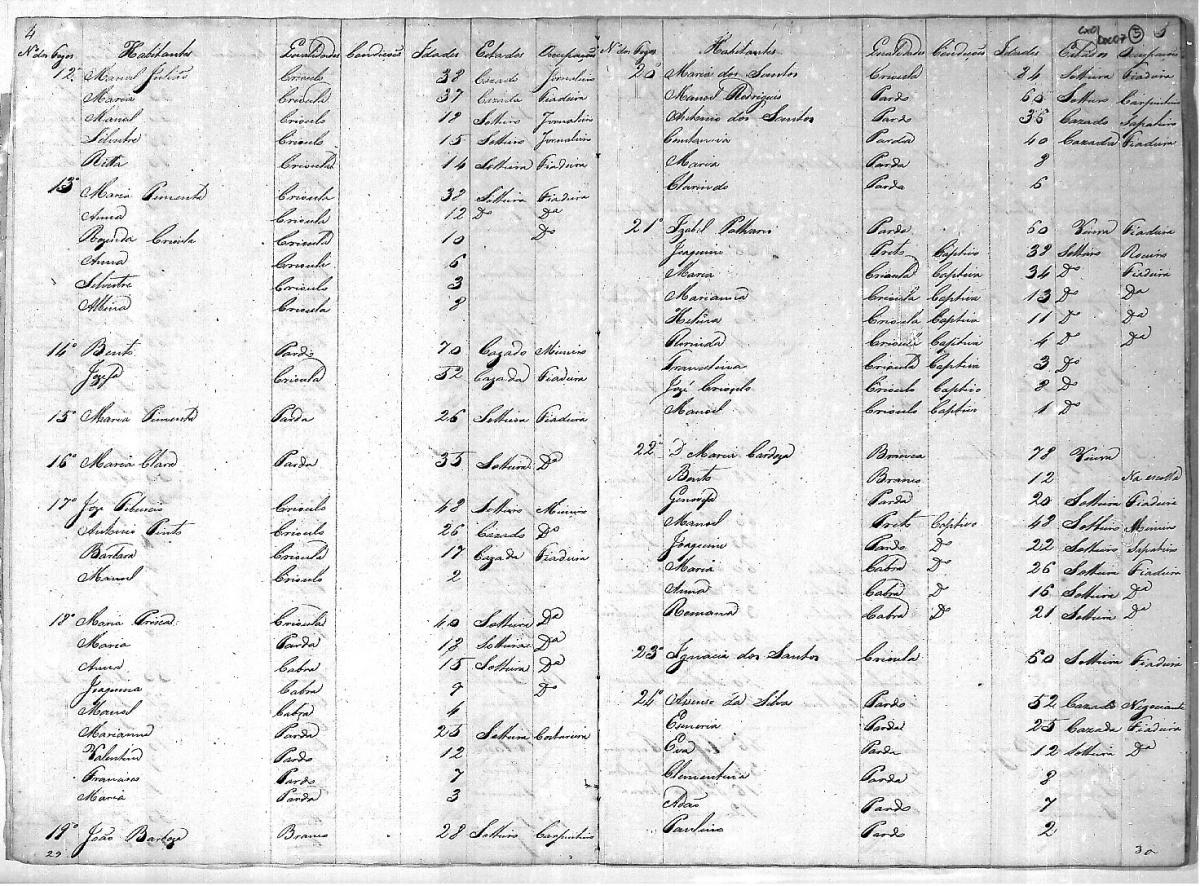 4
Nº dos Fogos Habitantes Qualidades Condição Idades Estados Occupação
12º Manoel Crioulo 38 Cazado Jornaleiro
Maria Crioula 37 Cazada Fiadeira
Manoel Crioulo 18 Solteiro Jornaleiro
Silvestre Crioulo 15 Solteiro Jornaleiro
Ritta Crioula 14 Solteira Fiadeira
13º Maria Pimenta Crioula 38 Solteira Fiadeira
Anna Crioula 12 Dº Dª
Crioula Crioula 10 Dº
Anna Crioula 6
Silvestre Crioulo 3
Albina Crioula 8
14º Bento Pardo 70 Cazado Mineiro
Jozefa Crioula 52 Cazada Fiadeira
15º Maria Pimenta Parda 26 Solteira Fiadeira
16º Maria Clara Parda 35 Solteira Dª
17º Joze Crioulo 48 Solteiro Mineiro
Antonio Pinto Crioulo 26 Cazado Dº
Barbara Crioula 17 Cazada Fiadeira
Manoel Crioulo 2
18º Maria Crioula 40 Solteira Dª
Maria Parda 18 Solteira Dª
Anna Cabra 15 Solteira Dª
Joaquina Cabra 9 Dº
Manoel Cabra 4
Marianna Parda 25 Solteira Costureira
Valentim Pardo 12
Francisco Pardo 7
Maria Parda 3
19º João Barboza Branco 28 Solteiro Carpinteiro
29
5
Cx01
Doc07 3
Nº dos Fogos Habitantes Qualidades Condição Idades Estados Occupação
20º Maria dos Santos Crioula 84 Solteira Fiadeira
Manoel Rodrigues Pardo 65 Solteiro Carpinteiro
Antonio dos Santos Pardo 36 Cazado Sapateiro
Constancia Parda 40 Cazada Fiadeira
Maria Parda 8
Clarinda Parda 6
21º Izabel Parda 60 Viuva Fiadeira
Joaquim Preto Captivo 39 Solteiro Roceiro
Maria Crioula Captiva 34 Dº Fiadeira
Marianna Crioula Captiva 13 Dº Dª
Crioula Captiva 11 Dº Dª
Crioula Captiva 4 Dº Dª
Crioula Captiva 3 Dº
Jozé Crioulo Crioulo Captivo 8 Dº
Manoel Crioulo Captivo 1 Dº
22º D Maria Cardoza Branca 78 Viuva
Bento Branco 12 Na escolla
Genoveva Parda 20 Solteira Fiadeira
Manoel Preto Captivo 48 Solteiro Mineiro
Joaquim Pardo Dº 22 Solteiro Sapateiro
Maria Cabra Dº 26 Solteira Fiadeira
Anna Cabra Dº 16 Solteira Dª
Romana Cabra Dº 21 Solteira Dª
23º Ignacia dos Santos Crioula 60 Solteira Fiadeira
24º da Silva Pardo 52 Cazado Negociante
Parda 25 Cazada Fiadeira
Eva Parda 12 Solteira Dª
Clementina Parda 8
Adão Pardo 7
Paulino Pardo 2
30